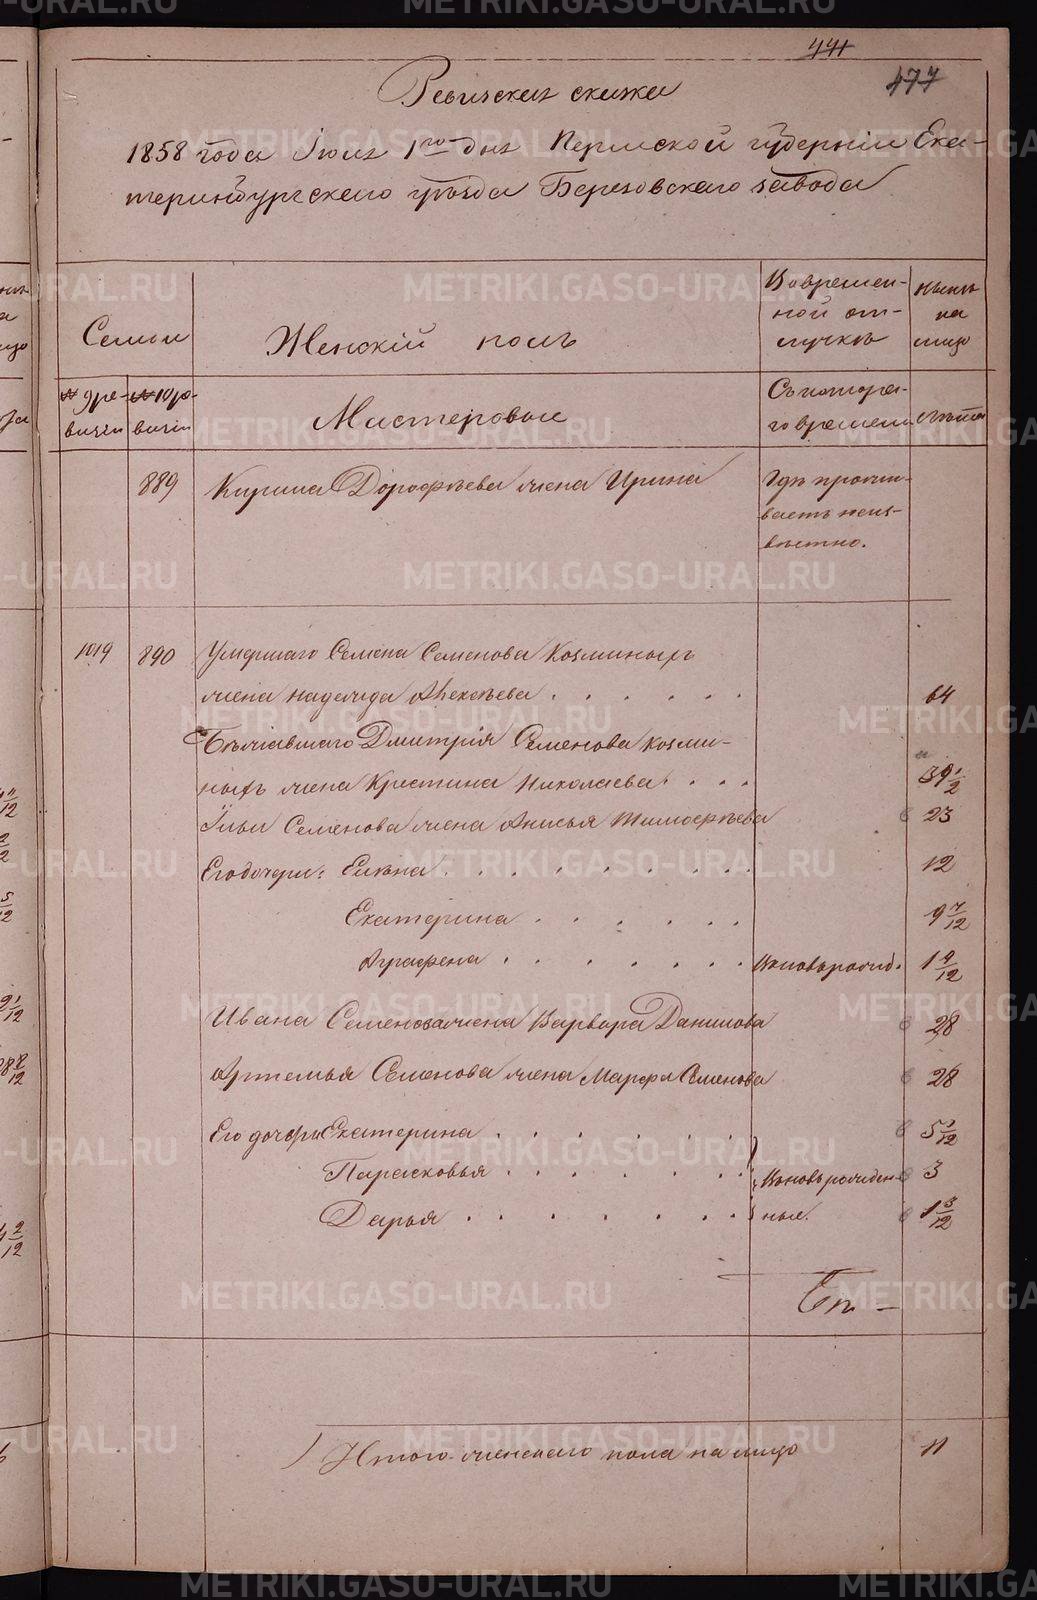 441
477
Ревизская сказка
1858 года Июля 1го дня Пермской губерніи Ека-
теринбургскаго уѣзда Березовскаго завода
Семьи
Женскій полъ
Вовремен-
ной от-
лучкѣ
Нынѣ
на
лицо
№ 9 ре-
визіи
№ 10 ре-
визіи
Мастеровые
Съ котора-
го времени
Лѣта
889
Кирила Дорофѣева жена Ирина
Гдѣ прожи-
ваетъ неиз-
вѣстно.
1019
890
Умершаго Семена Семенова Козминыхъ
жена Надежда Алексѣева . . . . . .
64
Бѣжавшаго Дмитрія Семенова Козми-
ныхъ жена Кристина Николаева . . .
39 1/2
Ильи Семенова жена Анисья Тимофѣева
23
Его дочери: Елена . . . . . . . .
12
Екатерина . . . . . .
9 7/12
Аграфена . . . . . . .
Вновьрожд.
1 9/12
Ивана Семенова жена Варвара Данилова
28
Артемья Семенова жена Марфа Семенова
28
Его дочери Екатерина . . . . . . .
5 1/12
Парасковья . . . . . .
Вновьрожден-
3
Дарья . . . . . . .
ные.
1 3/12
Итого женскаго пола на лицо
11
METRIKI.GASO-URAL.RU